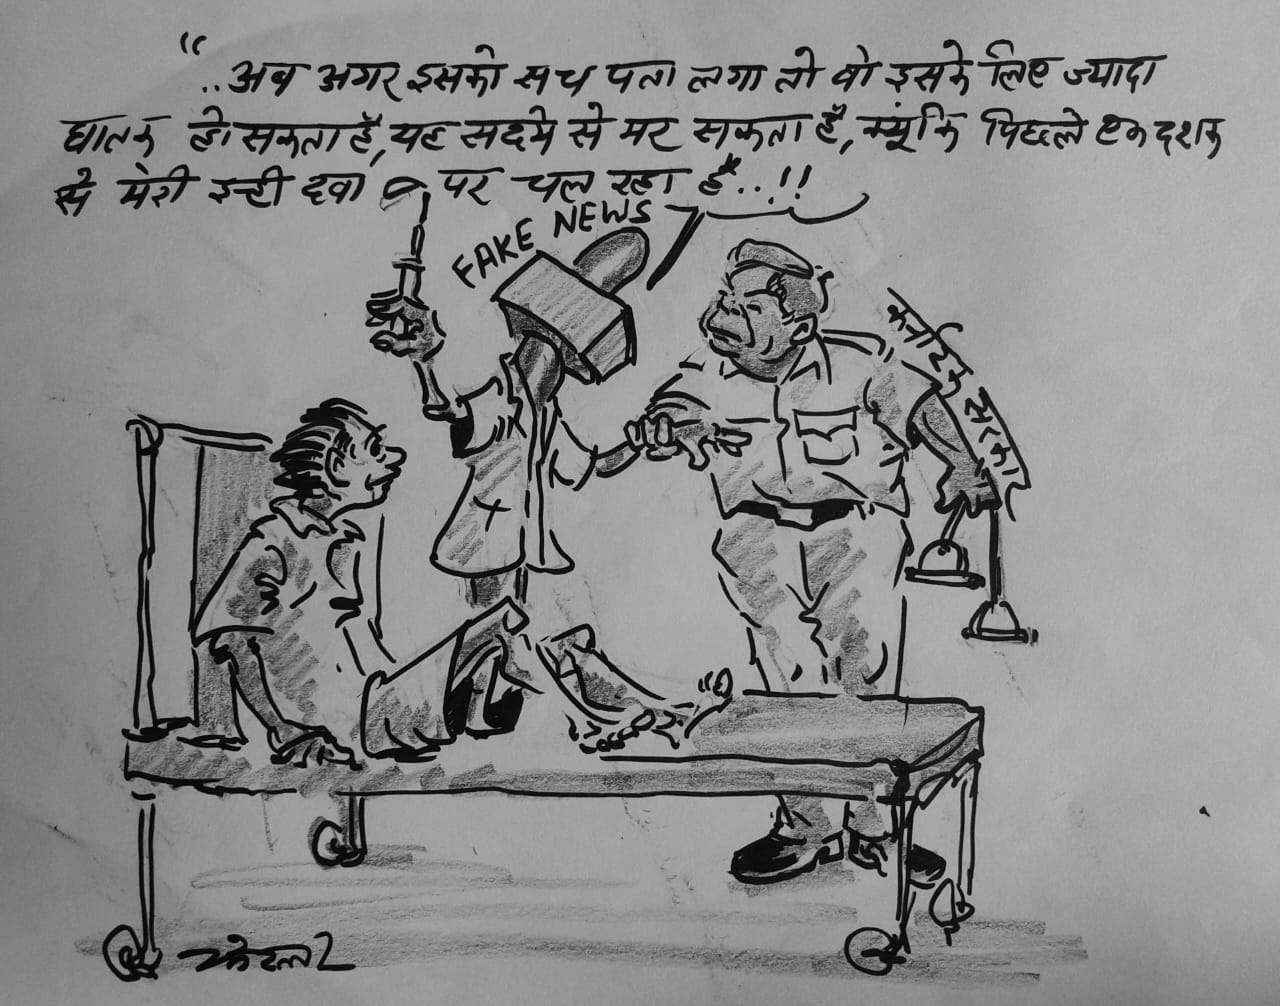 “..अब अगर इसको सच पता लगा तो वो इसके लिए ज्यादा
घातक हो सकता है, यह सदमे से मर सकता है, क्यूंकि पिछले एक दशक
से मेरी इन्ही दवा पर चल रहा है..!!
FAKE NEWS
कर्नाटक सरकार